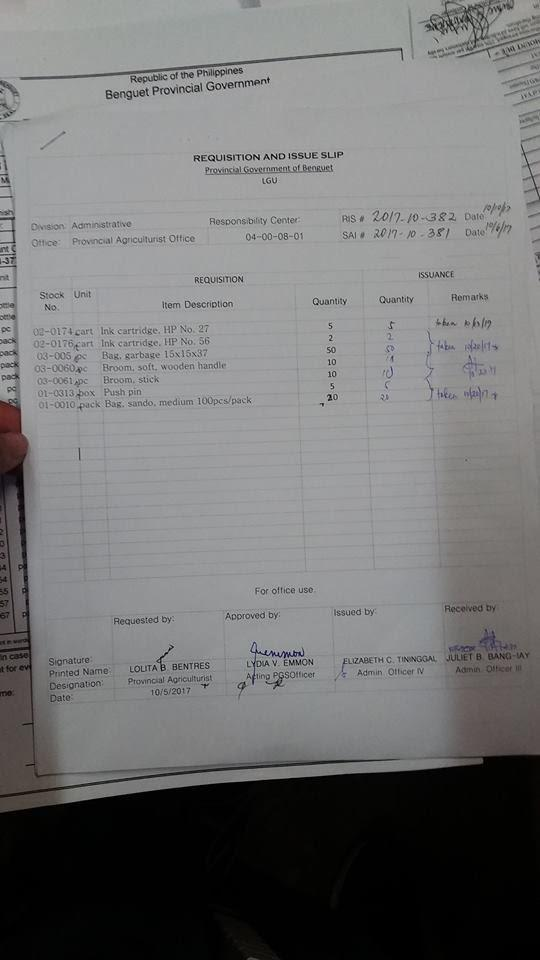 Republic of the Philippines
Benguet Provincial Government
REQUISITION AND ISSUE SLIP
Provincial Government of Benguet
LGU
Division: Administrative Responsibility Center: RIS # 2017-10-382 Date
Office: Provincial Agriculturist Office 04-00-08-01 SAI # 2017-10-381 Date 10/6/17
REQUISITION ISSUANCE
Stock No. Unit Item Description Quantity Quantity Remarks
02-0174 cart Ink cartridge, HP No. 27 5 5 taken
02-0176 cart Ink cartridge, HP No. 56 2 2
03-005 pc Bag, garbage 15x15x37 50 50 taken 10/20/17
03-0060 pc Broom, soft, wooden handle 10
03-0061 pc Broom, stick 10 10
01-0313 box Push pin 5 5
01-0010 pack Bag, sando, medium 100pcs/pack 20 20 taken 10/20/17
For office use.
Requested by: Approved by: Issued by: Received by:
Signature:
Printed Name LOLITA B. BENTRES LYDIA V. EMMON ELIZABETH C. TININGGAL JULIET B. BANG-IAY
Designation: Provincial Agriculturist Acting PGSOfficer Admin. Officer IV Admin. Officer III
Date: 10/5/2017